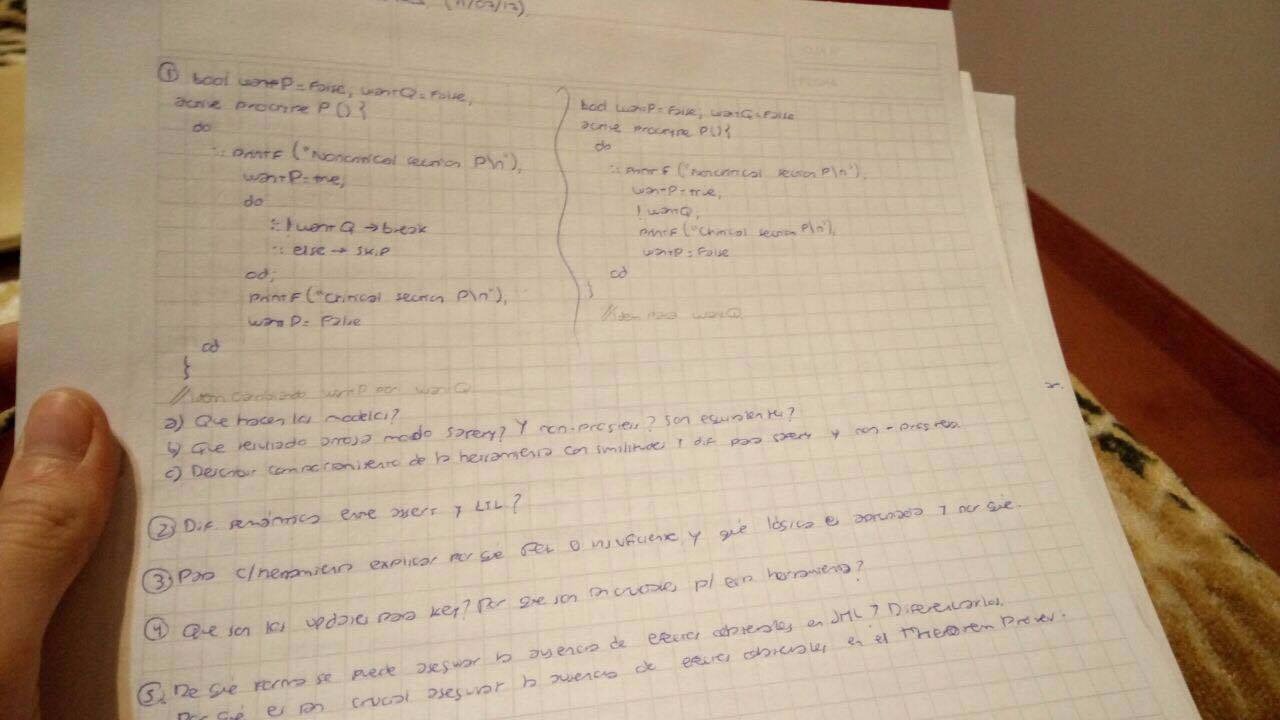 (11/07/17)
① bool wantP = False, wantQ = False,
active proctype P() {
do
:: printf ("Noncritical section P\n"),
wantP = true,
do
:: !wantQ → break
:: else → skip
od;
printf ("Critical section P\n"),
wantP = False
od
}
// wantP por wantQ
bool wantP = False, wantQ = False
active proctype P() {
do
:: printf ("Noncritical section P\n"),
wantP = true,
!wantQ,
printf ("Critical section P\n"),
wantP = False
od
}
// idem para wantQ
a) Que hacen los modelos?
b) Que resultado arroja modo safety? Y non-progress? Son equivalentes?
c) Describir comportamiento de la herramienta con similitudes y dif para safety y non-progress.
② Dif semántica entre assert y LTL?
③ Para c/herramienta explicar por qué es insuficiente y qué lógica es apropiada y por qué.
④ Que son los updates para KeY? Por que son cruciales p/ esta herramienta?
⑤. De que forma se puede asegurar la ausencia de efectos colaterales en JML? Diferenciarlos.
Por qué es tan crucial asegurar la ausencia de efectos colaterales en el Theorem Prover.